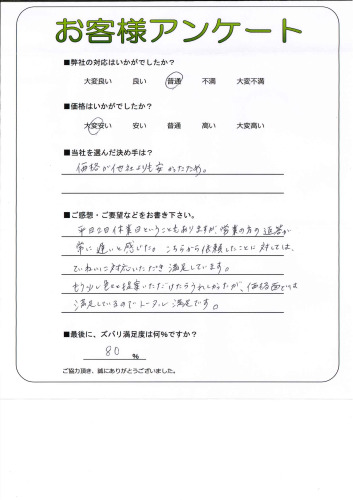 お客様アンケート
■弊社の対応はいかがでしたか?
大変良い 良い 普通 不満 大変不満
■価格はいかがでしたか?
大変安い 安い 普通 高い 大変高い
■当社を選んだ決め手は?
価格が他社よりも安かったため。
■ご感想・ご要望などをお書き下さい。
平日2日休業日ということもありますが、営業の方の返答が
常に遅いと感じた。こちらから依頼したことに対しては、
ていねいに対応いただき満足しています。
もう少し色々と提案いただけたらうれしかったが、価格面では
満足しているのでトータル満足です。
■最後に、ズバリ満足度は何%ですか?
80 %
ご協力頂き、誠にありがとうございました。